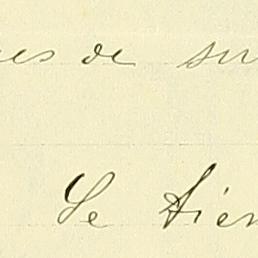 es de su
Se tien